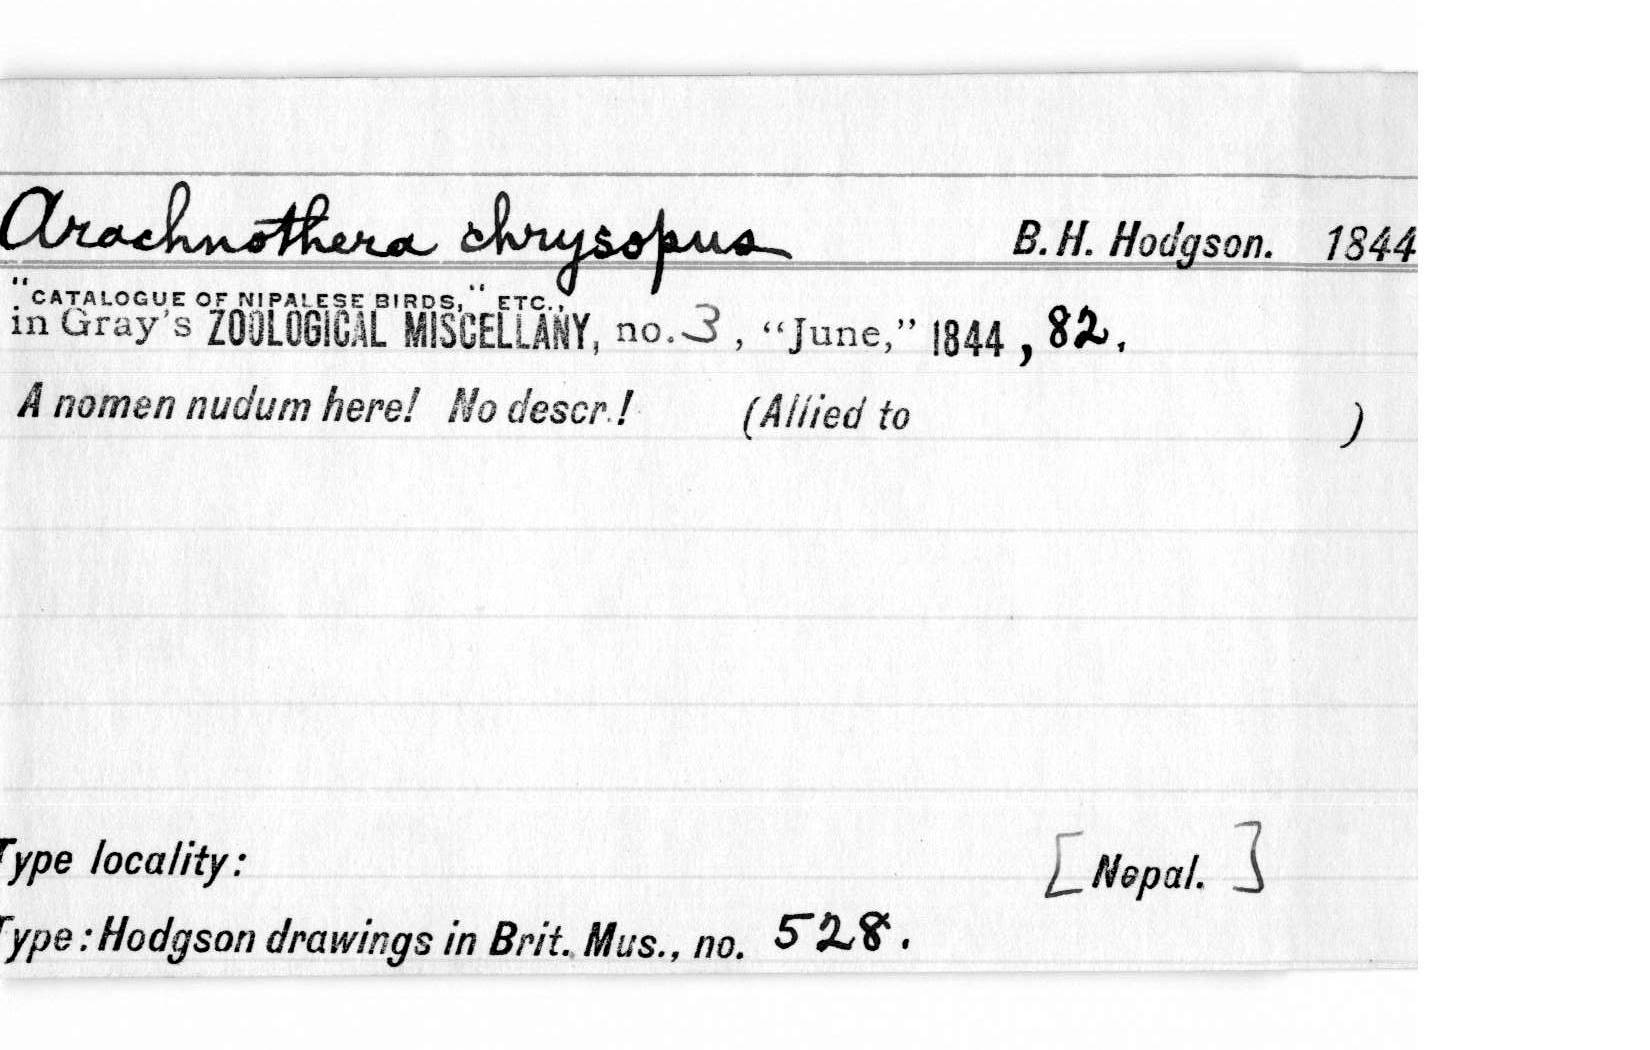 Arachnothera chrysopus B. H. Hodgson. 1844
"CATALOGUE OF NIPALESE BIRDS," ETC.,
in Gray's ZOOLOGICAL MISCELLANY, no. 3, "June," 1844, 82.
A nomen nudum here! No descr.! (Allied to )
Type locality: [Nepal.]
Type: Hodgson drawings in Brit. Mus., no. 528.